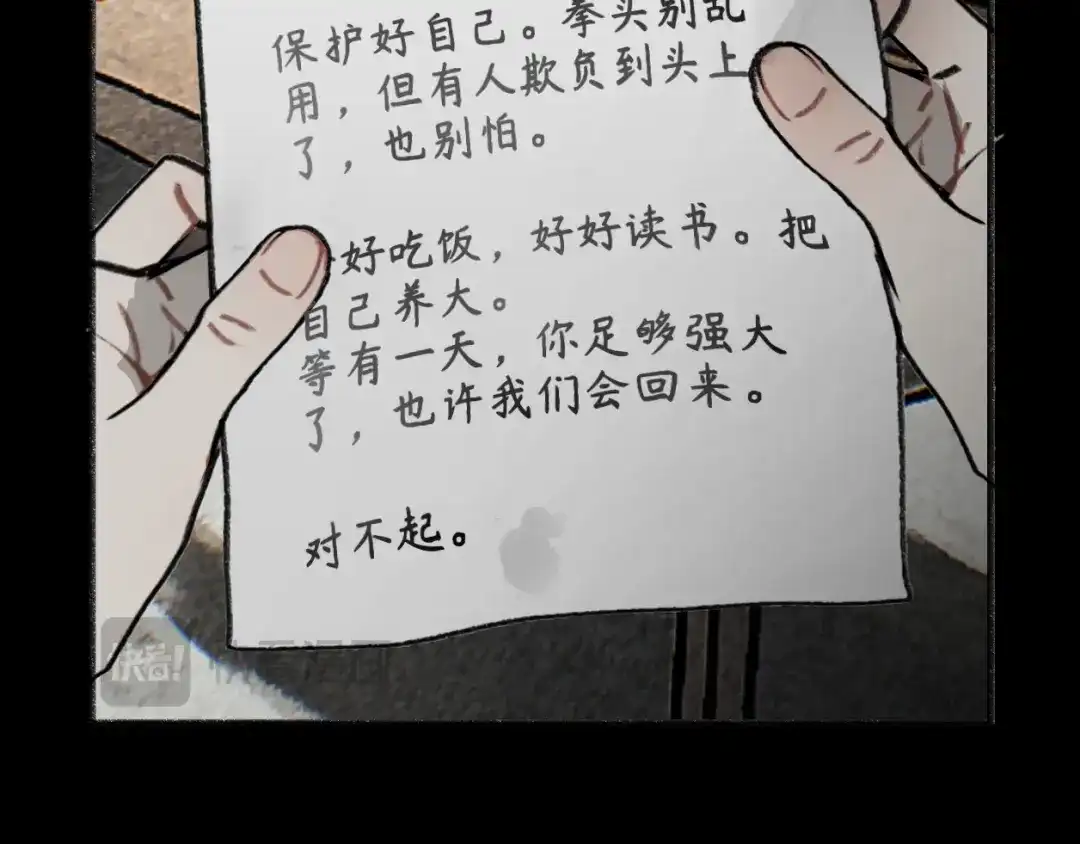 保护好自己。拳头别乱
用，但有人欺负到头上
了，也别怕。
好吃饭，好好读书。把
自己养大。
等有一天，你足够强大
了，也许我们会回来。
对不起。
快看!